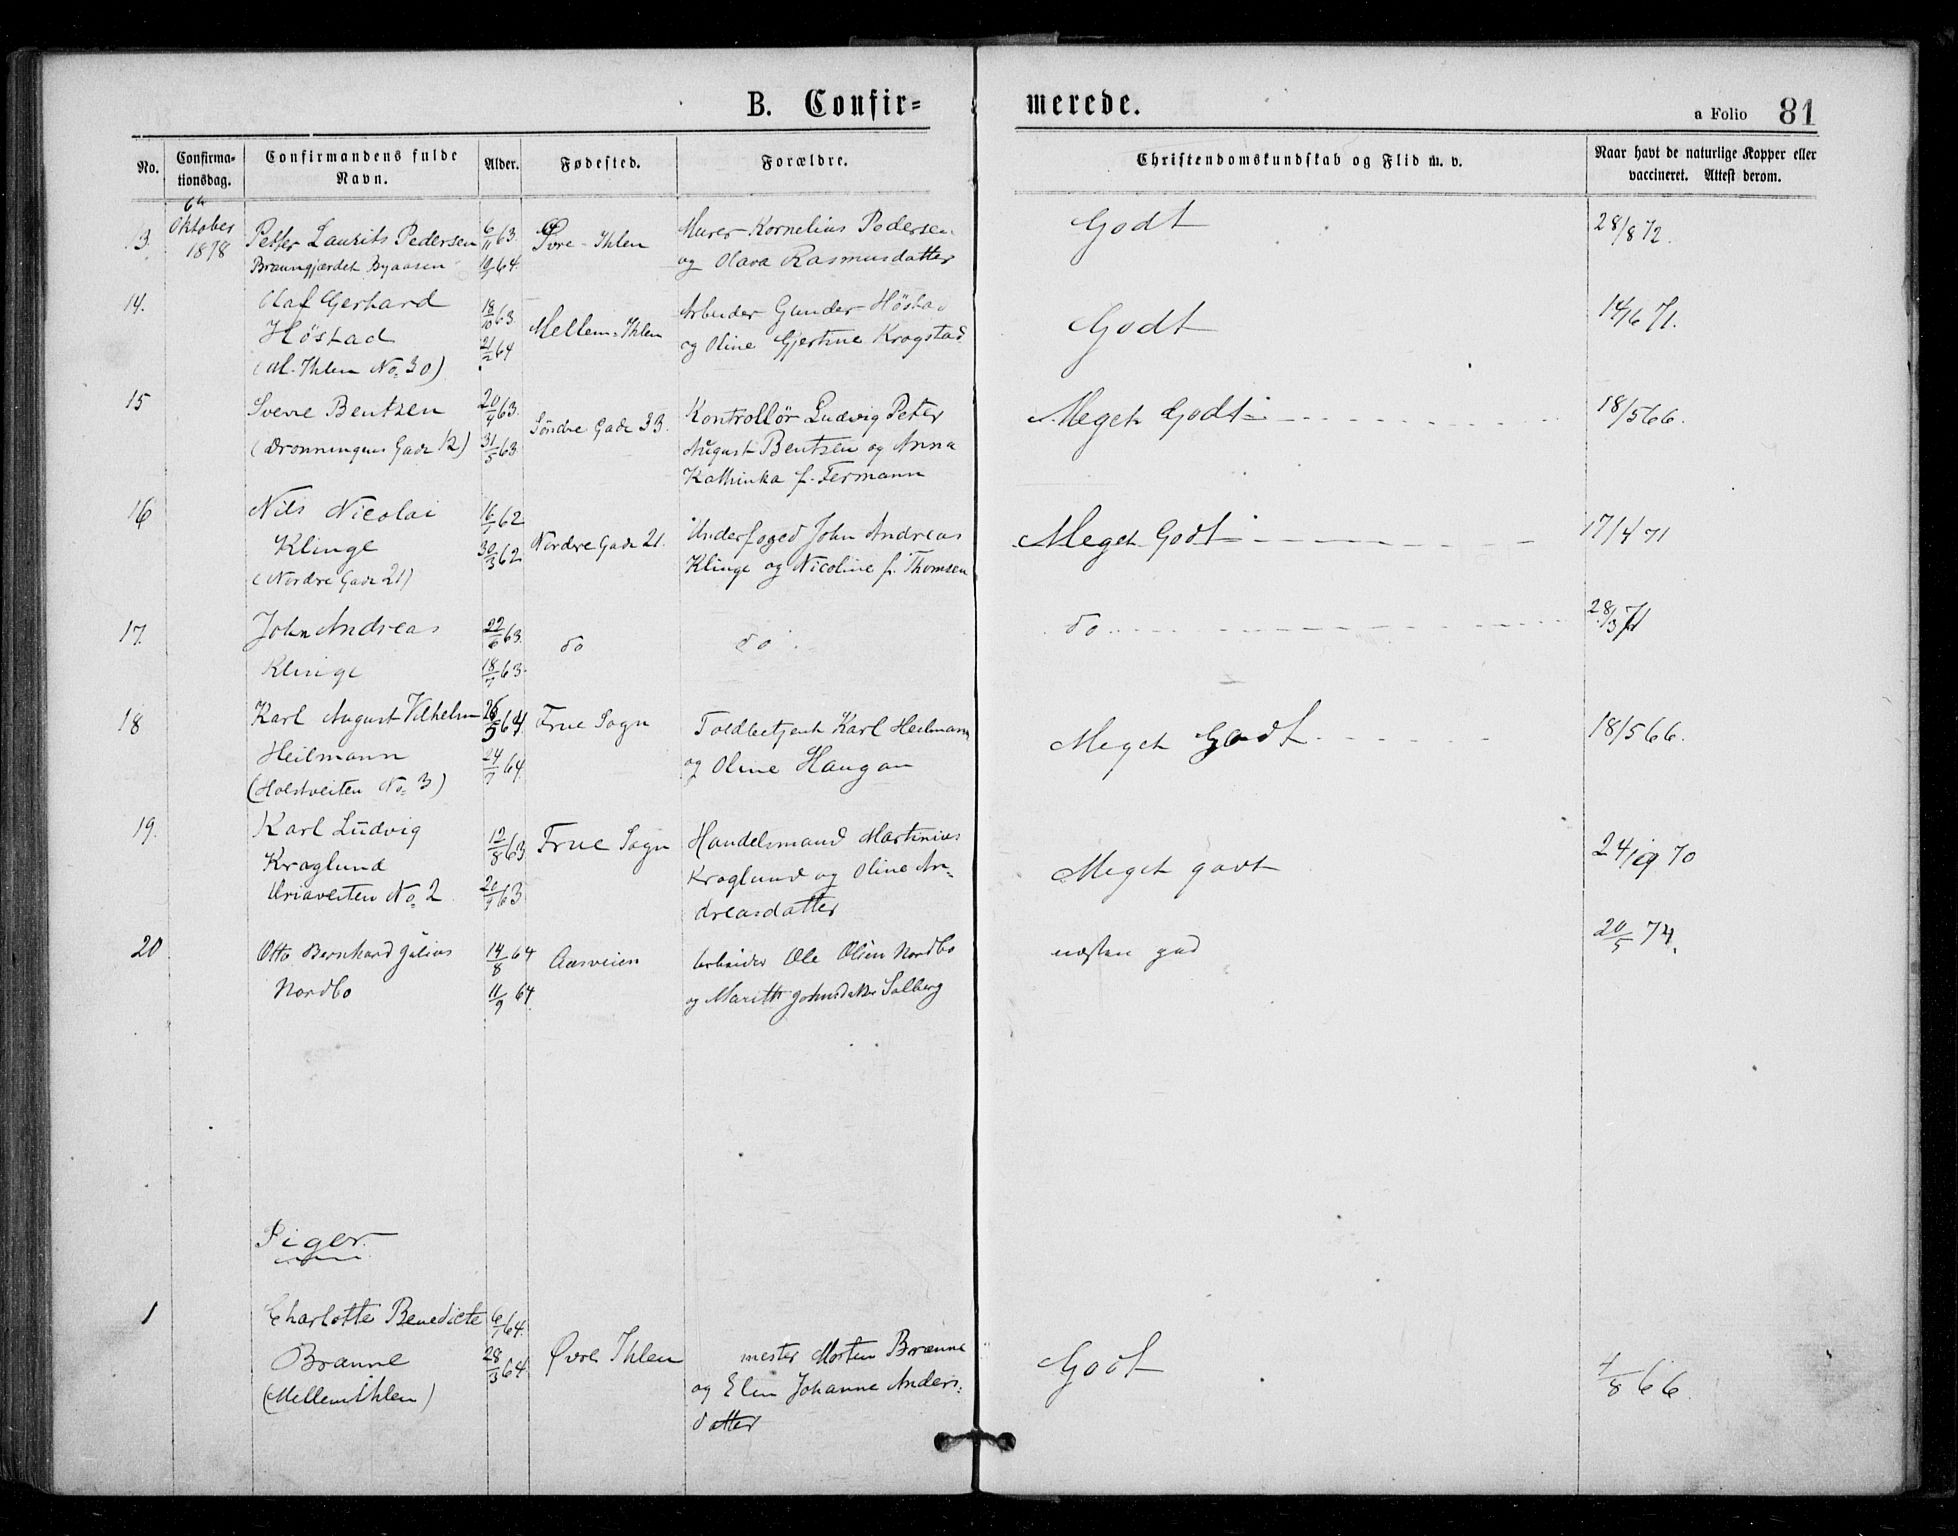 B. Confir=
merede.
a Folio 81
No.
Confirma-
tionsdag.
Confirmandens fulde
Navn.
Alder.
Fødested.
Forældre.
Christendomskundskab og Flid m. v.
Naar havt de naturlige Kopper eller
vaccineret. Attest derom.
6te
Oktober
1878
13.
Petter Laurits Pedersen
Byaasen
6/11 63.
64.
Øvre-Ihlen
Murer Kornelius Pedersen
og Olava Rasmusdatter
Godt
28/8 72.
14.
Olaf Gerhard
Höstad
(M. Ihlen No. 30)
18/10 63.
21/2 64
Mellem-Ihlen
Arbeider Gunder Höstad
og Oline Gjertine Krogstad
Godt
14/6 71.
15
Sverre Bentzen
(Dronningens Gade 12)
20/4 63.
31/5 63
Söndre Gade 33.
Kontrollör Ludvig Peter
August Bentzen og Anna
Kathinka f. Fermann
Meget Godt
18/5 66.
16
Nils Nicolai
Klinge
(Nordre Gade 21)
16/1 62
30/3 62
Nordre Gade 21.
Underfoged John Andreas
Klinge og Nicoline f. Thomsen
Meget Godt
17/4 71
17.
John Andreas
Klinge
22/6 63.
18/7 63.
do
do
do
28/3 71
18
Karl August Vilhelm
Heilmann
(Holstveiten No. 3)
26/5 64.
24/7 64.
Frue Sogn
Toldbetjent Karl Heilmann
og Oline Haugan
Meget Godt
18/5 66.
19.
Karl Ludvig
Kroglund
Uriaveiten No. 2
12/8 63
20/9 63
Frue Sogn
Handelsmand Martinius
Kroglund og Oline An-
dreasdatter
Meget godt
24/9 70
20
Otto Bernhard Julius
Nordbo
14/8 64
11/9 64.
Aasveien
Arbeider Ole Olsen Nordbo
og Marith Johnsdatter Solberg
næsten god
20/5 74.
Piger.
1
Charlotte Benedicte
Brænne
(Mellem Ihlen)
6/1 64.
28/3 64
Øvre Ihlen
mester Morten Brænne
og Elen Johanne Anders-
datter
Godt
/8 66.